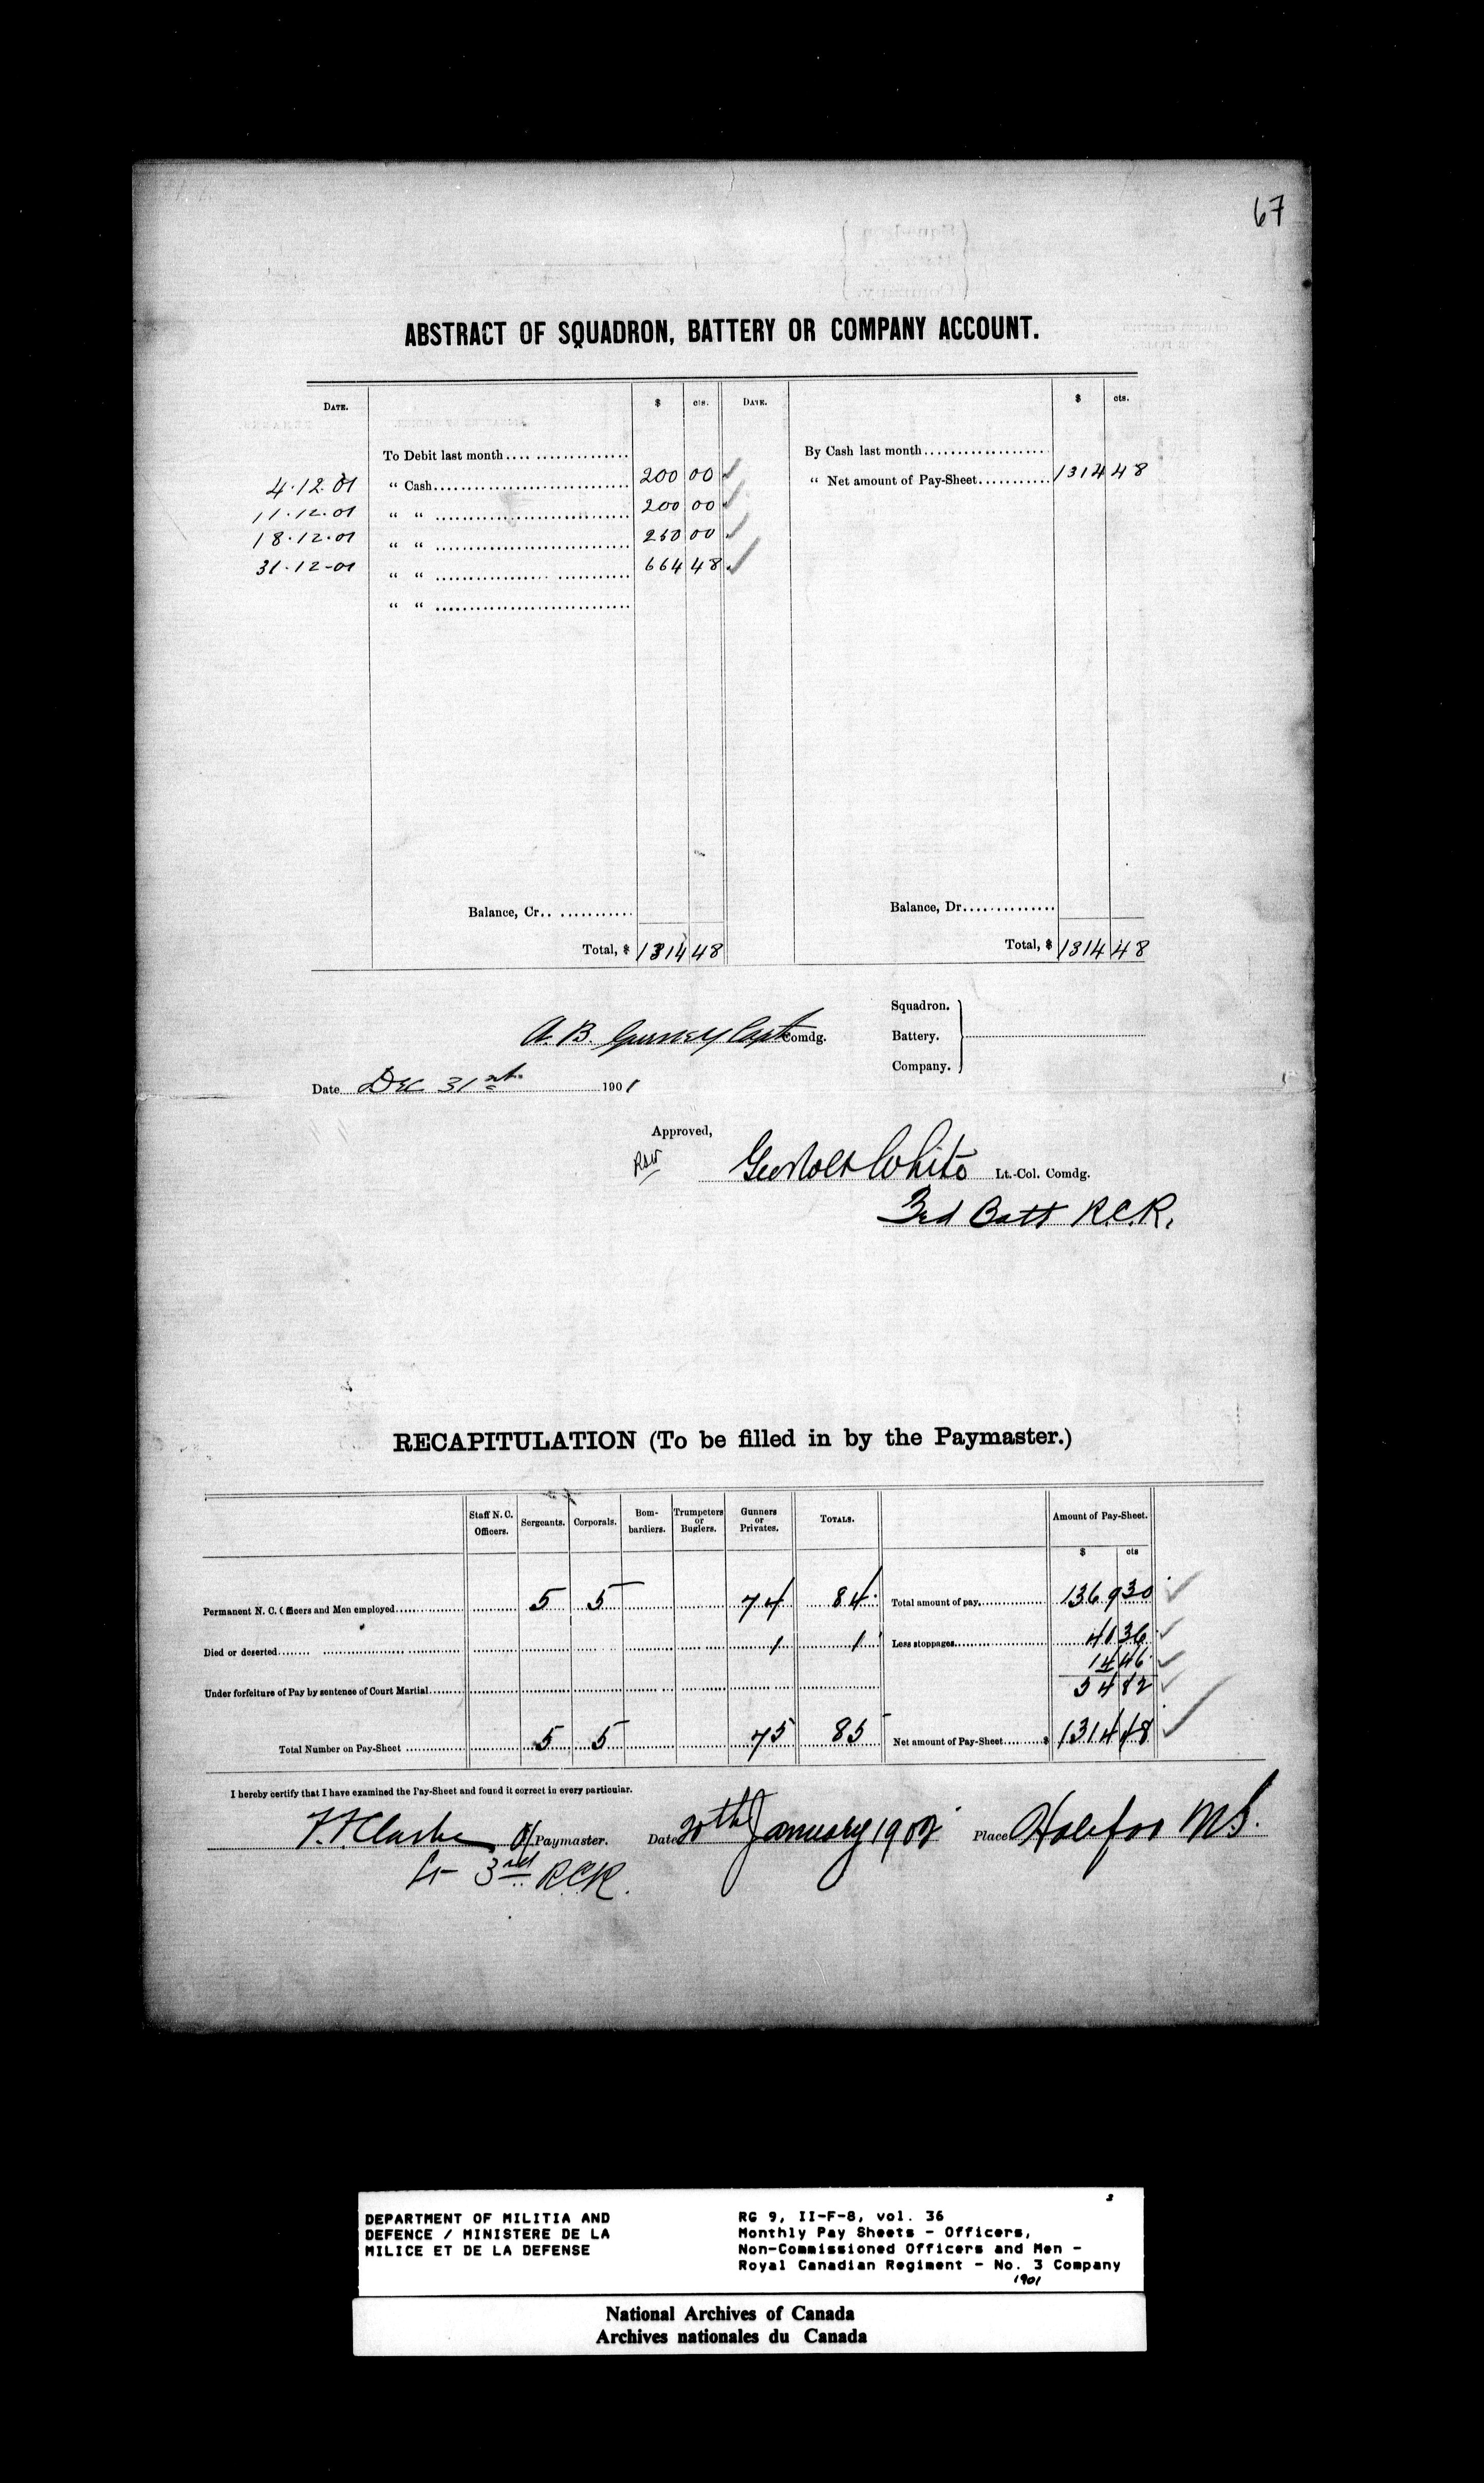 67
ABSTRACT OF SQUADRON, BATTERY OR COMPANY ACCOUNT.
DATE. $ cts. DATE. $ cts.
To Debit last month By Cash last month
4.12.01 " Cash 200 00 " Net amount of Pay-Sheet 1314 48
11.12.01 " " 200 00
18.12.01 " " 250 00
31.12-01 " " 664 48
" "
Balance, Cr. Balance, Dr.
Total, $ 1314 48 Total, $ 1314 48
Squadron.
A. B. Capt Comdg. Battery.
Company.
Date Dec 31st 1901
Approved,
White Lt.-Col. Comdg.
3rd Batt R.C.R.
RECAPITULATION (To be filled in by the Paymaster.)
Staff N. C. Officers. Sergeants. Corporals. Bombardiers. Trumpeters or Buglers. Gunners or Privates. TOTALS. Amount of Pay-Sheet.
$ cts
Permanent N. C. Officers and Men employed 5 5 74 84 Total amount of pay 1369 30
Died or deserted 1 1 Less stoppages 41 36
14 46
Under forfeiture of Pay by sentence of Court Martial 54 82
Total Number on Pay-Sheet 5 5 75 85 Net amount of Pay-Sheet $ 1314 48
I hereby certify that I have examined the Pay-Sheet and found it correct in every particular.
Clarke Paymaster. Date 20th January 1902 Place Halifax N.S.
Lt 3rd RCR.
DEPARTMENT OF MILITIA AND
DEFENCE / MINISTERE DE LA
MILICE ET DE LA DEFENSE
RG 9, II-F-8, vol. 36
Monthly Pay Sheets - Officers,
Non-Commissioned Officers and Men -
Royal Canadian Regiment - No. 3 Company
1901
National Archives of Canada
Archives nationales du Canada